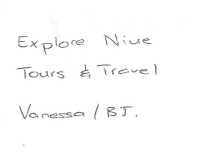 Explore Niue
Tours & Travel
Vanessa / BJ.